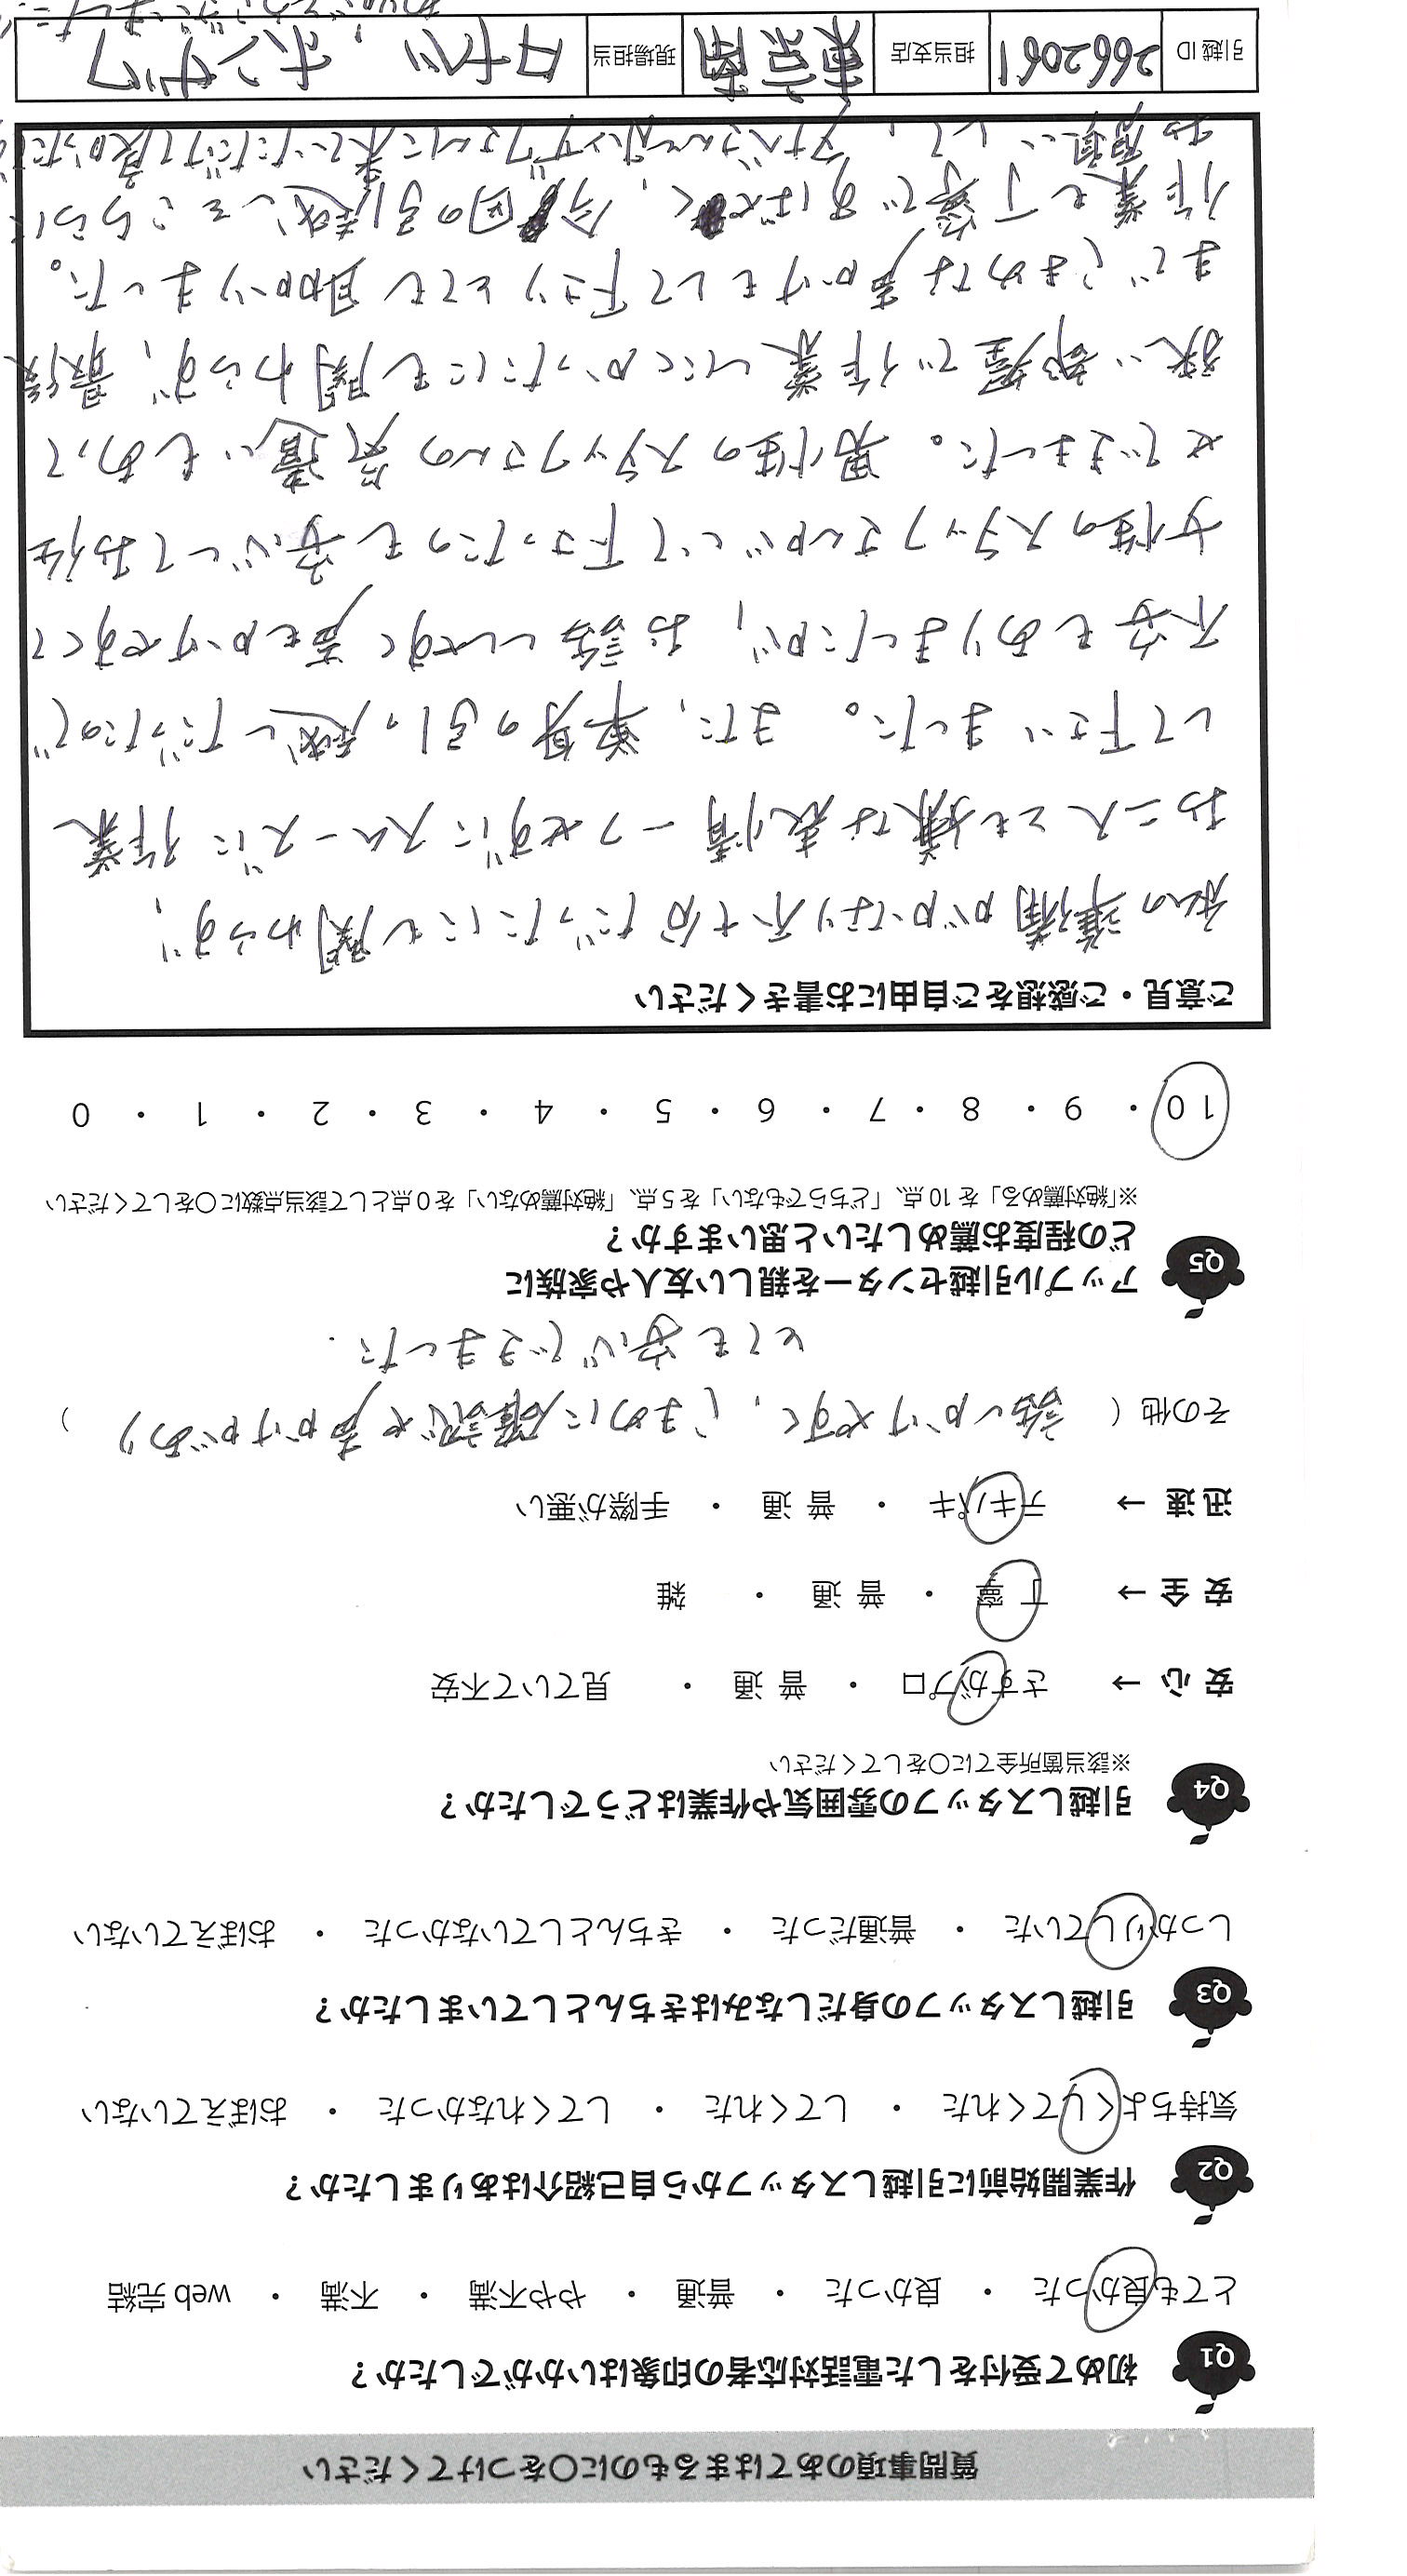 質問事項のあてはまるものに〇をつけてください
Q1 初めて受付をした電話対応者の印象はいかがでしたか？
とても良かった ・ 良かった ・ 普通 ・ やや不満 ・ 不満 ・ web 完結
Q2 作業開始前に引越しスタッフから自己紹介はありましたか？
気持ちよくしてくれた ・ してくれた ・ してくれなかった ・ おぼえていない
Q3 引越しスタッフの身だしなみはきちんとしていましたか？
しっかりしていた ・ 普通だった ・ きちんとしていなかった ・ おぼえていない
Q4 引越しスタッフの雰囲気や作業はどうでしたか？
※該当箇所全てに〇をしてください
安 心 → さすがプロ ・ 普 通 ・ 見ていて不安
安 全 → 丁 寧 ・ 普 通 ・ 雑
迅 速 → テキパキ ・ 普 通 ・ 手際が悪い
その他 ( 話しかけやすく、こまめに確認や声かけがあり )
とても安心できました.
Q5 アップル引越センターを親しい友人や家族に
どの程度お薦めしたいと思いますか？
※「絶対薦める」を 10 点、「どちらでもない」を 5 点、「絶対薦めない」を 0 点として該当点数に〇をしてください
10 ・ 9 ・ 8 ・ 7 ・ 6 ・ 5 ・ 4 ・ 3 ・ 2 ・ 1 ・ 0
ご意見・ご感想をご自由にお書きください
私の準備がかなり不十分だったにも関わらず、
お二人とも嫌な表情一つせずにスムーズに作業
して下さいました。また、単身の引っ越しだったので
不安もありましたが、お話ししやすく声もかけやすくて
女性のスタッフさんがいて下さったのも安心してお任
せできました。男性のスタッフさんの気遣いもあって
狭い部屋で作業しにくかったにも関わらず、最後
までこまめな声かけもして下さりとても助かりました。
作業も丁寧ですばやく、今回の引越しをこちらに
お願いして、ナバさんホンザワさんに来ていただけて良かったです
ありがとうございました
引越 ID 2662061 担当支店 東京南 現場担当 ホンザワ